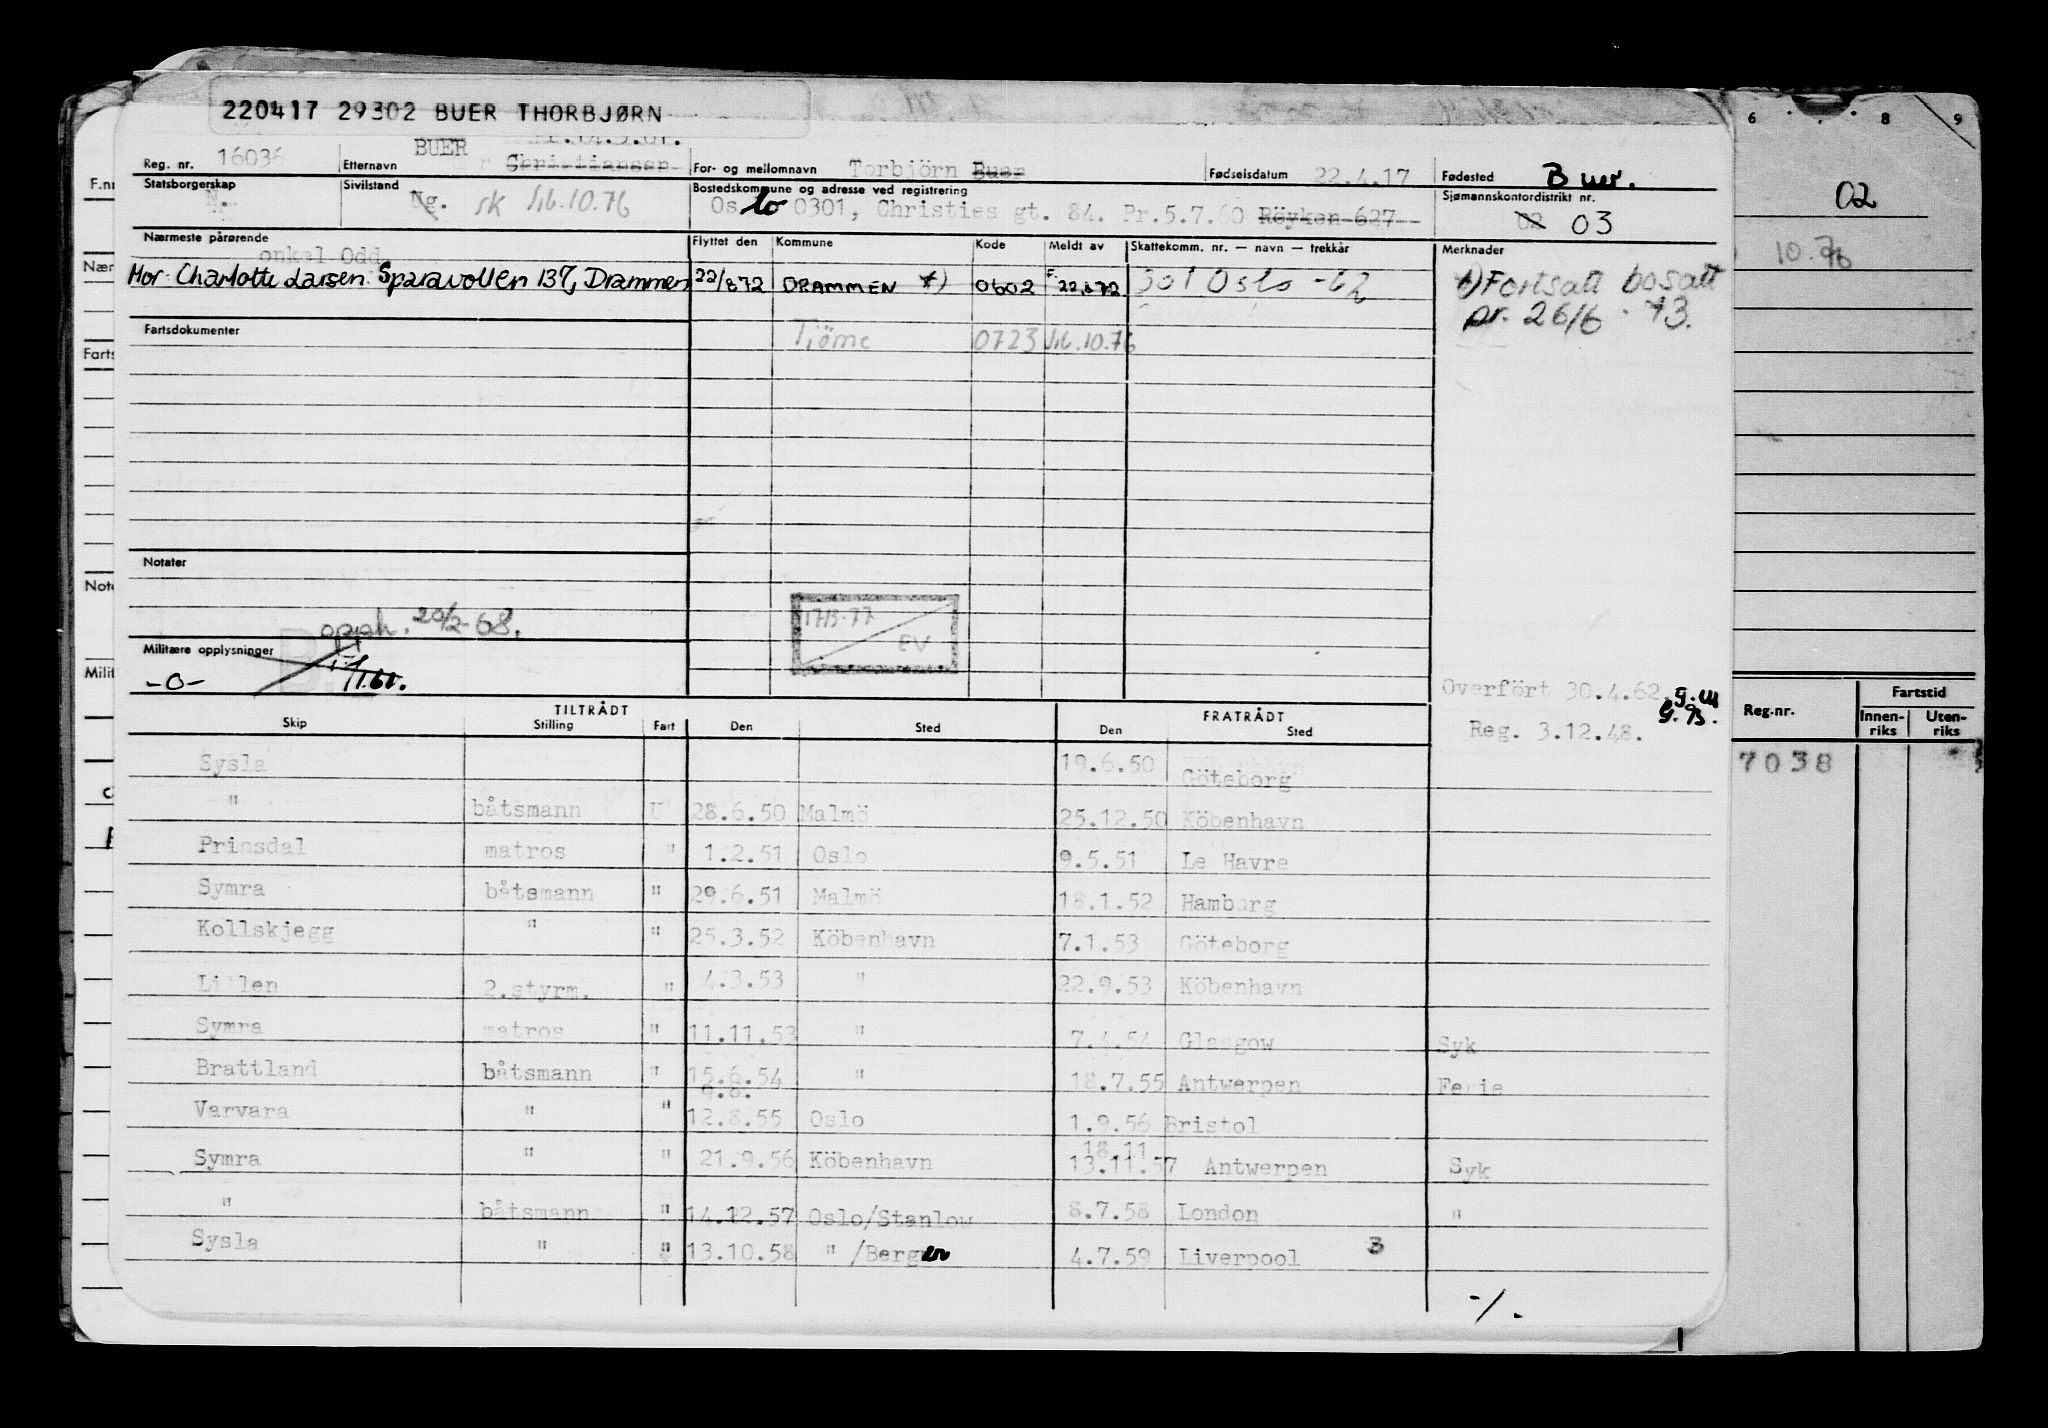 220417 29302 BUER THORBJØRN
6 8 9
Reg. nr. 16036 Etternavn BUER Christiansen For- og mellomnavn Torbjörn Buer Fødselsdatum 22.4.17 Fødested Buer.
Statsborgerskap N. Sivilstand Ug. sk 10.76 Bostedskommune og adresse ved registrering Sjømannskontordistrikt nr.
Oslo 0301, Christies gt. 84. Pr.5.7.60 Röyken 627 02 03
02
Nærmeste pårørende Flyttet den Kommune Kode Meldt av Skattekomm. nr. — navn — trekkår Merknader
onkel Odd
Mor: Charlotte Larsen Sparavollen 137, Drammen 22/8 72 DRAMMEN *) 0602 F. 22.8.72 301 Oslo -62 *) Fortsatt bosatt
pr. 26/6 - 73.
10.76
Fartsdokumenter Tjöme 0723 10.76
Notater
opph. 20/2-68.
17/3-77
EV
Militære opplysninger
-0-
Overfört 30.4.62.
Reg. 3.12.48.
TILTRÅDT FRATRÅDT
Skip Stilling Fart Den Sted Den Sted
Reg.nr. Fartstid
Innen-riks Uten-riks
7038
Sysla 19.6.50 Göteborg
" båtsmann U 28.6.50 Malmö 25.12.50 Köbenhavn
Prinsdal matros " 1.2.51 Oslo 9.5.51 Le Havre
Symra båtsmann " 29.6.51 Malmö 18.1.52 Hamburg
Kollskjegg " " 25.3.52 Köbenhavn 7.1.53 Göteborg
Lillen 2.styrm. " 4.3.53 " 22.9.53 Köbenhavn
Symra matros " 11.11.53 " 7.4.54 Glasgow Syk
Brattland båtsmann " 15.6.54 " 18.7.55 Antwerpen Ferie
9.8.
Varvara " " 12.8.55 Oslo 1.9.56 Bristol
18.11
Symra " " 21.9.56 Köbenhavn 13.11.57 Antwerpen Syk
" båtsmann " 14.12.57 Oslo/Stanlow 8.7.58 London "
Sysla " " 13.10.58 " /Bergen 4.7.59 Liverpool 3
-/.